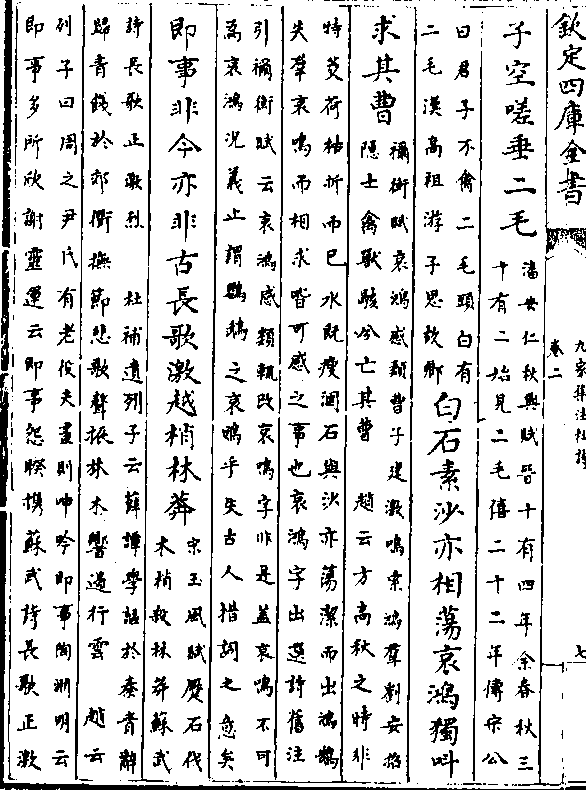 欽定四庫全書
九家集注杜詩
卷二
七
子空嗟垂二毛
潘安仁秋興賦晉十有四年余春秋三
十有二始見二毛僖二十二年傳宋公
曰君子不禽二毛頭白有
二毛漢高祖游子思故鄉
白石素沙亦相蕩哀鴻獨叫
求其曹
禰衡賦哀鴻感類曹子建激鳴索鴻羣劉安招
隱士禽獸駭兮亡其曹 趙云方高秋之時非
特芰荷枯折而已水既瘦涸石與沙亦蕩潔而出鴻鵠
失羣哀鳴而相求皆可感之事也哀鴻字出選詩舊注
引禰衡賦云哀鴻感類輒改哀鳴字非是蓋哀鳴不可
為哀鴻況義止謂鸚鵡之哀鳴乎失古人措詞之意矣
即事非今亦非古長歌激越梢林莽
宋玉風賦蹷石伐
木梢殺林莽蘇武
詩長歌正激烈 杜補遺列子云薛譚學謳於秦青辭
歸青餞於郊衢撫節悲歌聲振林木響遏行雲 趙云
列子曰周之尹氏有老役夫晝則呻吟即事陶淵明云
即事多所欣謝靈運云即事怨睽攜蘇武詩長歌正激